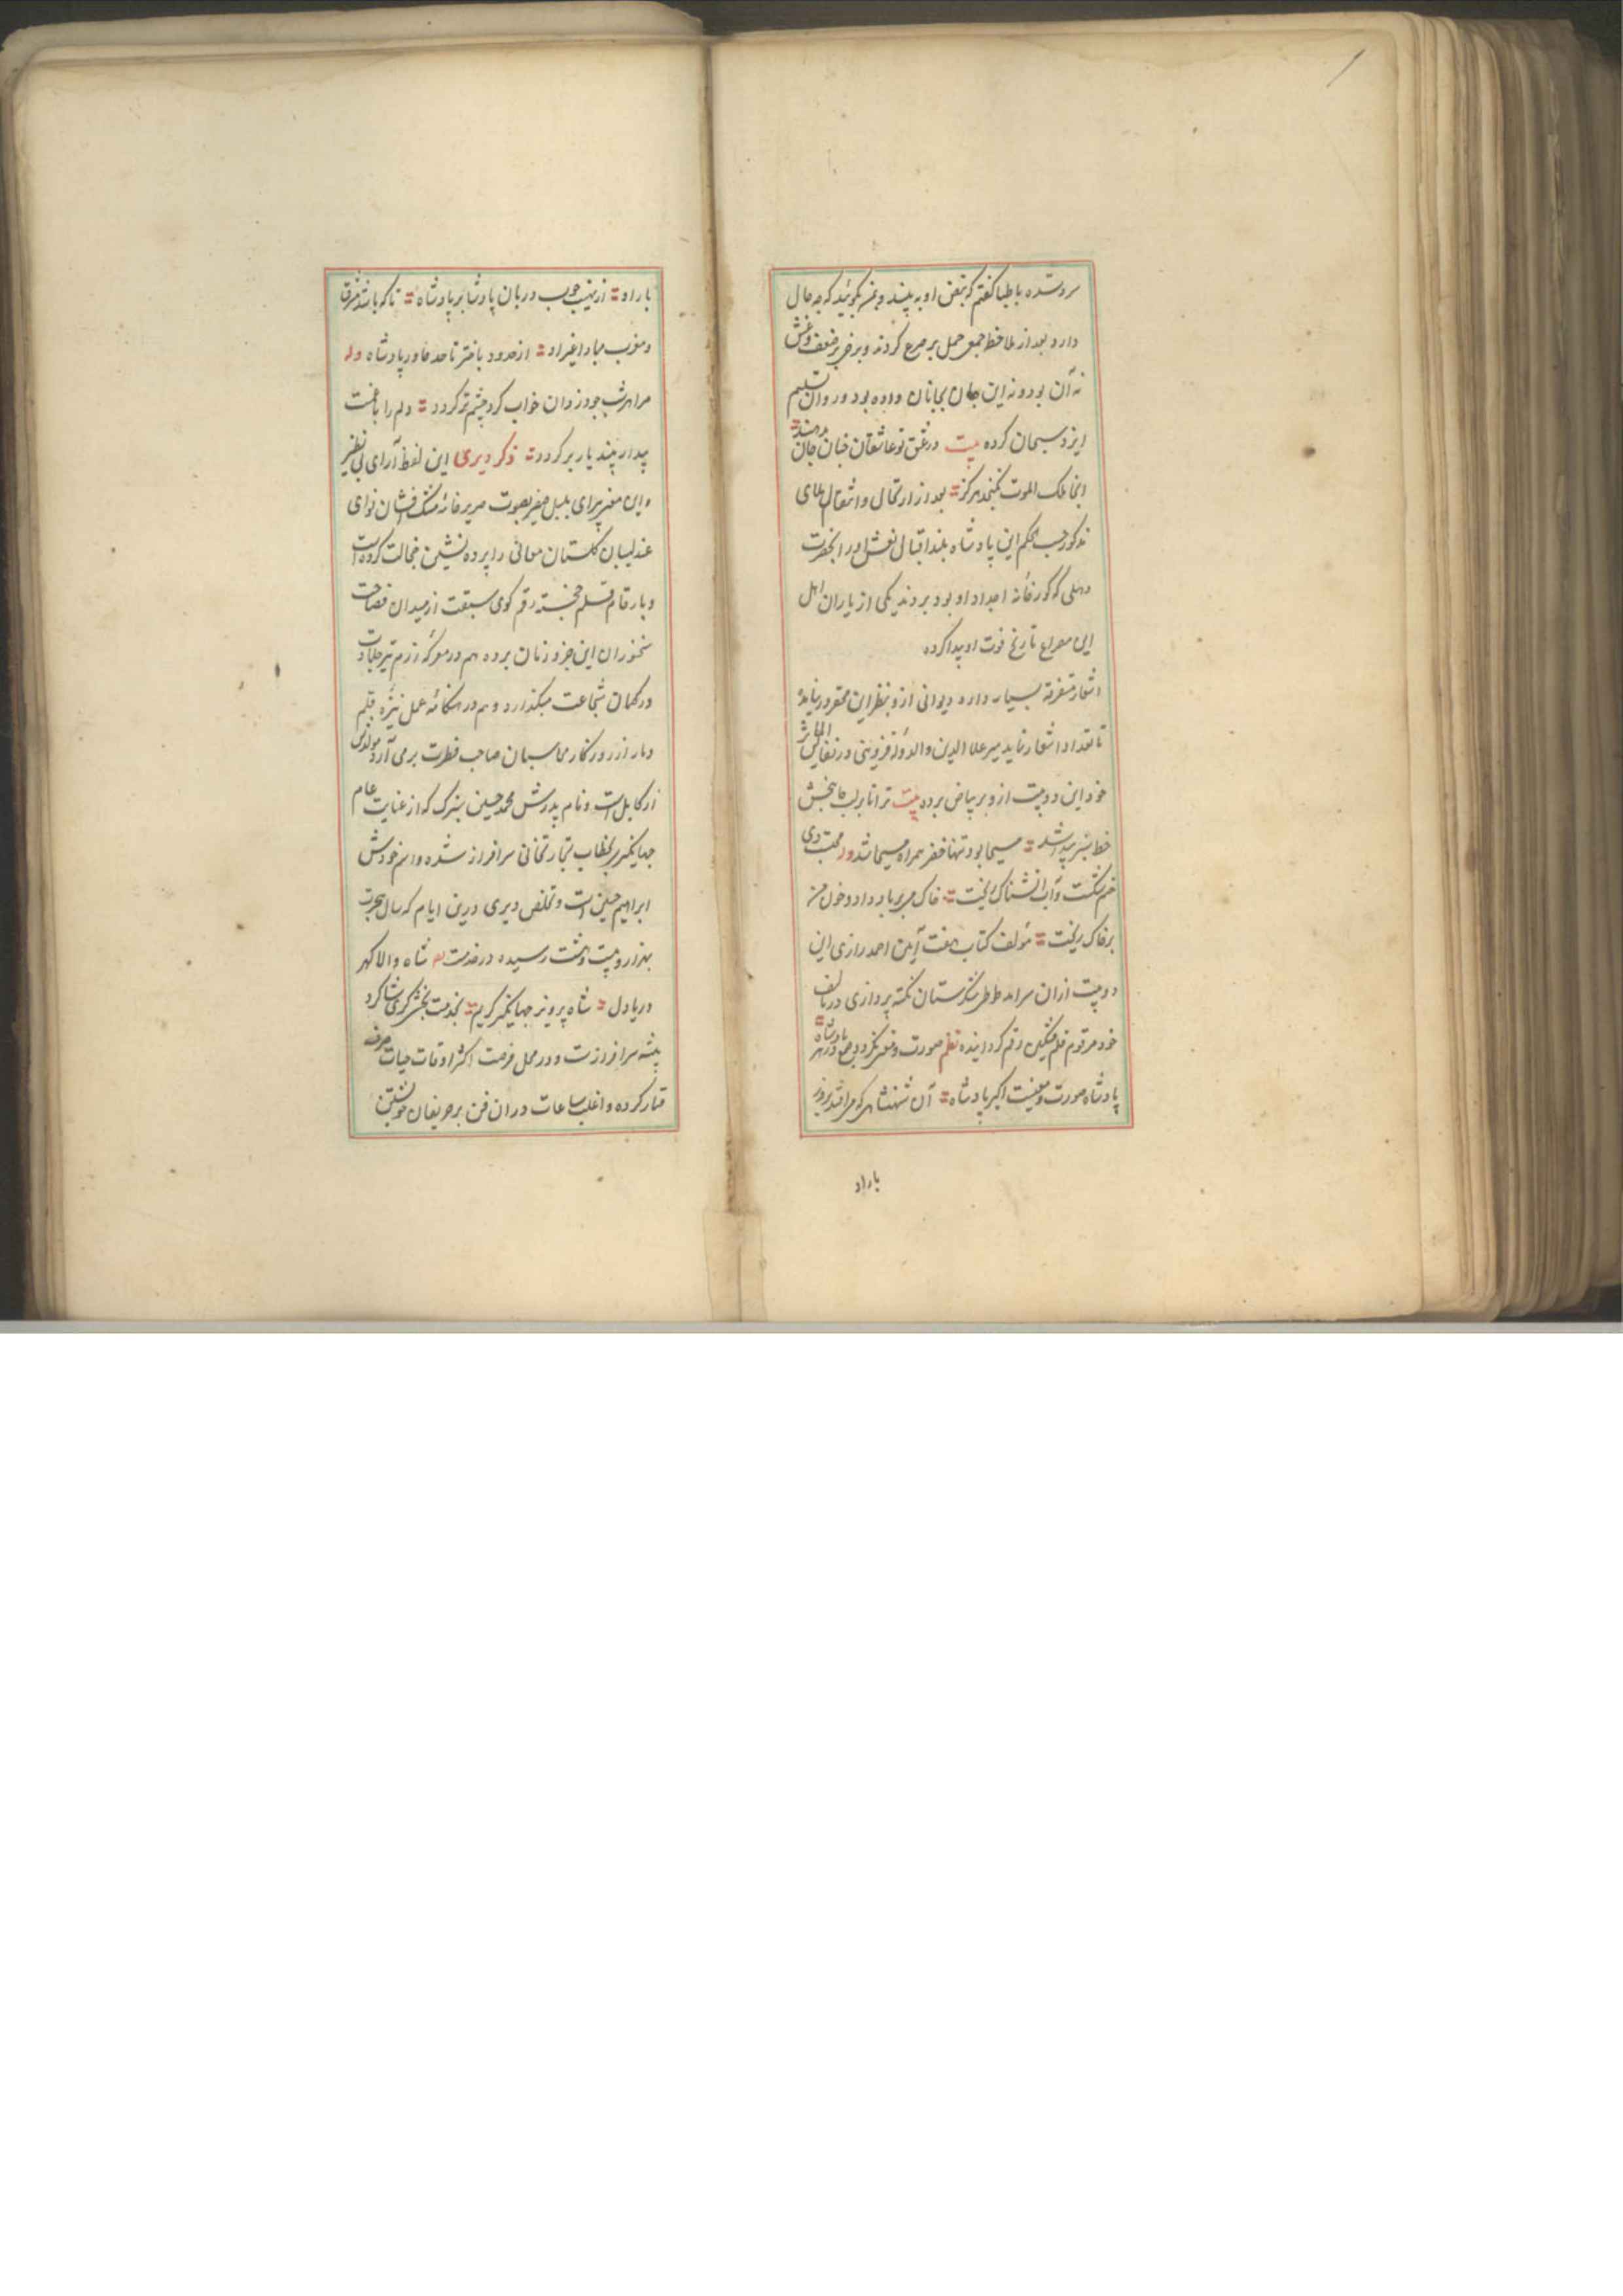 سرد شده باطبا گفتم که نبض او به بینند و بمن بگوئید که چه حال
دارد بعد از ملاحظه جمعی حمل بر صرع کردند و برخی بر ضعف و غش
نه آن بود و نه این جان بجانان داده بود و روان تسلیم
ایزد سبحان کرده بیت در عشق تو عاشقان چنان جان بدهند
انجا ملک الموت نگنجد هرگز بعد از ارتحال و انتقال ملای
مذکور حسب الحکم این پادشاه بلند اقبال نعش او را بحضرت
دهلی که گورخانه اجداد او بود بردند یکی از یاران اهل
این مصراع تاریخ فوت او پیدا کرده
اشعار متفرقه بسیار دارد دیوانی ازو بنظر این محقر در نیامده
تا تعداد اشعار نماید میر علاء الدوله قزوینی در نفایس المآثر
خود این دو بیت ازو بر بیاض برده بیت ترا تا بر لب جانبخش
خط سبز پیدا شد مسیحا بود تنها خضر همراه مسیحا شد وله محبت دی
خم شکست و آب انشناک ریخت خاک میبرباد داد و خون من
بر خاک ریخت مؤلف کتاب هفت اقلیم امین احمد رازی این
دو بیت ازان سرآمد طوطی شکرستان نکته پردازی در تالیف
خود مرقوم قلم مشکین رقم گردانیده نظم صورت و معنی نگردد جمع در هر پادشاه
پادشاه صورت و معنیست اکبر پادشاه آن شهنشاهی که مرافتد بروز
بار او
بار او از نهیب چوب دربان پادشا بر پادشاه تا که باشد مشرق
و مغرب مبادا غیر او از حدود باختر تا حد خاور پادشاه وله
مرا هر شب چو دزدان خواب گرد چشم تر گردد دلم را با غمت
بیدار بیند باز برگردد ذکر دیری این لفظ آرای بی نظیر
و این معنی پیرای بلبل صفیر بصوت صریر خامه مشک افشان نوای
عندلیبان گلستان معانی را پرده نشین خجالت کرده است
و بارقام قلم خجسته رقم گوی سبقت از میدان فصاحت
سخنوران این جزو زمان برده هم در معرکه رزم تیر جلادت
در کمان شجاعت میگذارد و هم در هنگامه عمل نیزه قلم
دمار از روزگار محاسبان صاحب فطرت برمی آرد مولدش
از کابل است و نام پدرش محمد حسین بزرگ که از عنایت عام
جهانگیر بخطاب تجارتخانی سرافراز شده و اسم خودش
ابراهیم حسین است و تخلص دیری درین ایام که سال هجرت
بهزار و بیست و هشت رسیده در خدمت شاه والا گهر
دریا دل شاه پرویز جهانگیر کریم بخدمت بخشیگری شاگرد
پیشه سرافرازست و در محل فرصت اکثر اوقات حیات صرف
قمار کرده و اغلب ساعات دران فن بر حریفان خویشتن